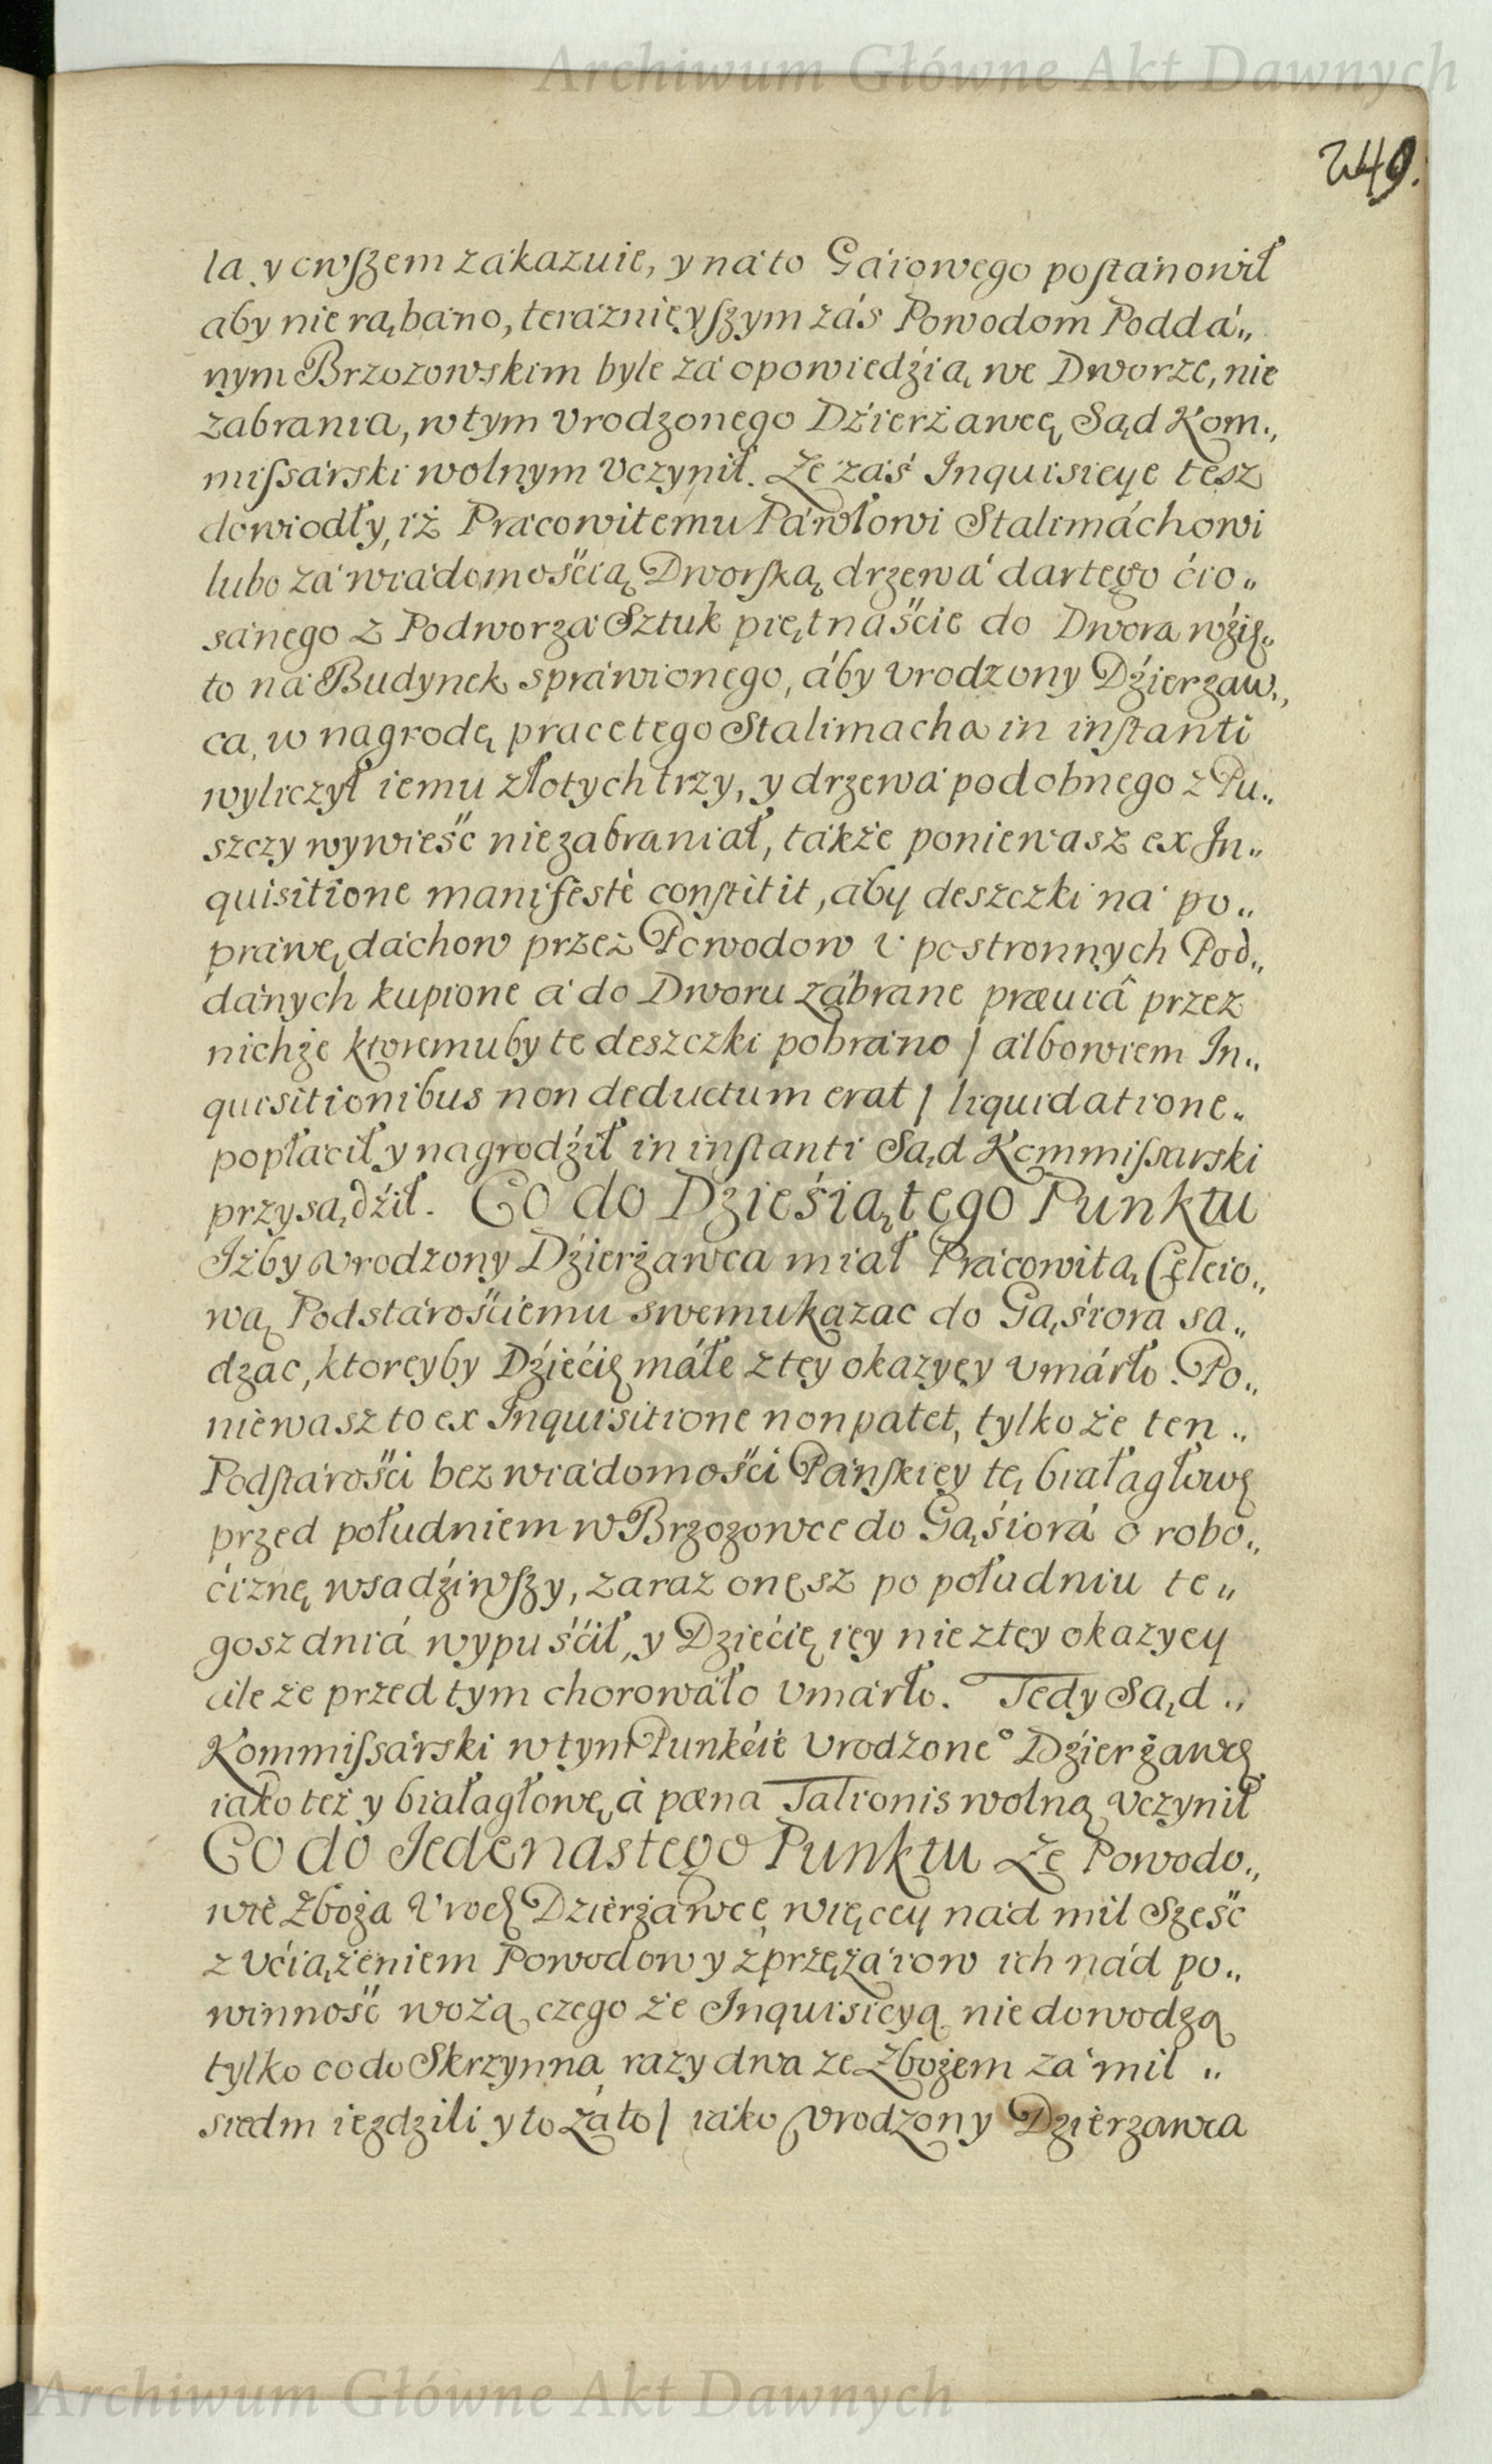 Archiwum Główne Akt Dawnych
249.
la, y owſzem zákazuie, y ná to Gáiowego poſtánowił
aby nie rąbáno, teraznieyſzym záś Powodom Poddá„
nym Brzozowskim byle zá opowiedźią we Dworze, nie
zabrania, w tym Vrodzonego Dźierżawcę Sąd Kom„
miſsárski wolnym Vczynił. Ze záś Inquisicye tesz
dowiodły, iż Prácowitemu Páwłowi Stalimáchowi
lubo zá wiádomośćią Dworſką drzewá dartego ćio„
sánego z Podworzá Sztuk piętnaśćie do Dwora wźię„
to ná Budynek spráwionego, áby Vrodzony Dźierzaw„
ca, w nagrodę prace tego Stalimacha in inſtanti
wyliczył iemu złotych trzy, y drzewá podobnego z Pu„
szczy wywieść nie zabraniał, tákże poniewasz ex In„
quisitione manifestè conſtitit, aby deszczki ná po„
práwę dáchow przez Powodow v postronnych Pod„
dánych kupione á do Dworu zábrane præuiâ przez
nichże ktoremu by te deszczki pobráno / álbowiem In„
quisitionibus non deductum erat / liquidatione„
popłácił y nagrodźił in inſtanti Sąd Kommiſsarski
przysądźił. Co do Dzieśiątego Punktu
Iżby Vrodzony Dźierżawca miał Prácowitą Celcio„
wą Podstárośćiemu swemu kazac do Gąśiora sa„
dzac, ktoreyby Dźiećię máłe z tey okazyey Vmárło. Po„
niewasz to ex Inquisitione non patet, tylko że ten „
Podſtárośći bez wiádomośći Páńſkiey tę białagłowę
przed południem w Brzozowce do Gąśiorá o robo„
ćiznę wsadźiwſzy, zaraz onęsz po południu te„
gosz dniá wypuśćił, y Dziećię iey nie z tey okazyey
ale że przed tym chorowáło Vmárło. Tedy Sąd „
Kommiſsárski w tym Punkćie Vrodzoneº Dźierżawcę
iáko też y białagłowę à pœna Talionis wolną Vczynił
Co do Iedenastego Punktu Że Powodo„
wie Zboża Vrodz Dzierżawcę więcey nád mil Sześć
z Vćiążeniem Powodow y zprzężáiow ich nád po„
winność wożą czego że Inquisicyą nie dowodzą
tylko co do Skrzynna razy dwa ze Zbożem zá mil „
siedm iezdzili y to záto / iáko Vrodzony Dzierzawca
Archiwum Główne Akt Dawnych